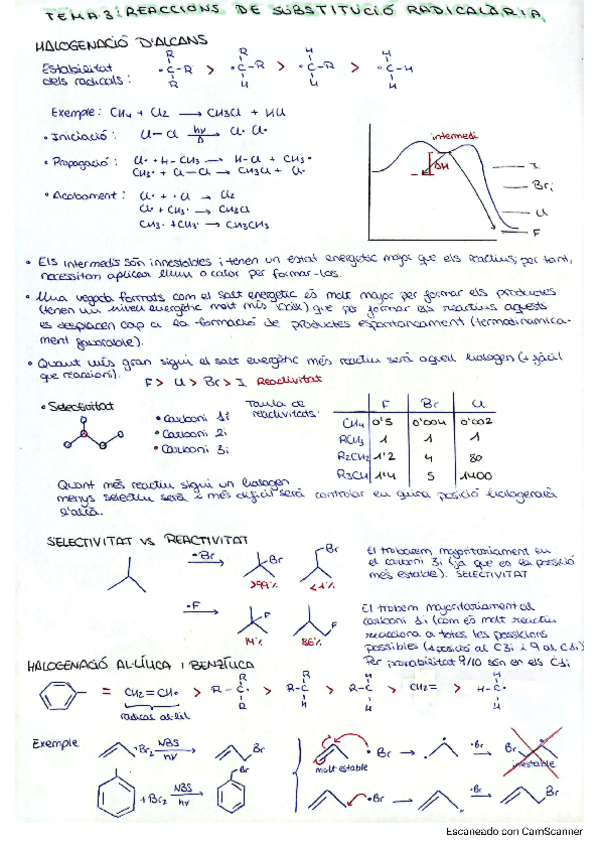 TEMA 3: REACCIONS DE SUBSTITUCIÓ RADICALÀRIA
HALOGENACIÓ D'ALCANS
Estabilitat dels radicals:
R R H H
•C-R > •C-R > •C-R > •C-H
R H H H
Exemple: CH4 + Cl2 → CH3Cl + HCl
• Iniciació: Cl-Cl hν Δ Cl• Cl•
• Propagació: Cl• + H-CH3 → H-Cl + CH3•
CH3• + Cl-Cl → CH3Cl + Cl•
• Acabament: Cl• + •Cl → Cl2
Cl• + CH3• → CH3Cl
CH3• + CH3• → CH3CH3
intermedi
ΔH
I
Br
Cl
F
• Els intermedis són inestables i tenen un estat energètic major que els reactius; per tant,
necessiten aplicar llum o calor per formar-los.
• Una vegada formats com el salt energètic és molt major per formar els productes
(tenen un nivell energètic molt més baix) que per formar els reactius aquests
es desplacen cap a la formació de productes espontàneament (termodinàmica-
ment favorable).
• Quant més gran sigui el salt energètic més reactiu serà aquell halogen (+ fàcil
que reaccioni).
F > Cl > Br > I Reactivitat
• Selectivitat
• Carboni 1i
• Carboni 2i
• Carboni 3i
Taula de reactivitats:
F Br Cl
CH4 0'5 0'004 0'002
RCH3 1 1 1
R2CH2 1'2 4 80
R3CH 1'4 5 1400
Quant més reactiu sigui un halogen
menys selectiu serà i més difícil serà controlar en quina posició halogenarà
l'alcà.
SELECTIVITAT VS REACTIVITAT
•Br
Br
Br
>99% <1%
El trobarem majoritàriament en
el carboni 3i (ja que es la posició
més estable). SELECTIVITAT
•F
F
F
14% 86%
El trobem majoritàriament al
carboni 1i (com és molt reactiu
reacciona a totes les posicions
possibles (1 posició al C3i i 9 al C1i)
Per probabilitat 9/10 són en els C1i
HALOGENACIÓ AL·LÍLICA I BENZÍLICA
R H H H
= CH2=CH• > R-C• > R-C• > R-C• > CH2= > H-C•
R R H H
radical al·lil
Exemple
+ Br2 NBS hν Br
molt estable
•Br → •Br Br
inestable
+ Br2 NBS hν Br
•Br → •Br Br
Escaneado con CamScanner